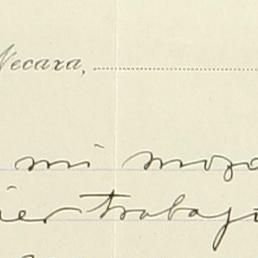 Necaxa,
mi mozo
ier trabajo